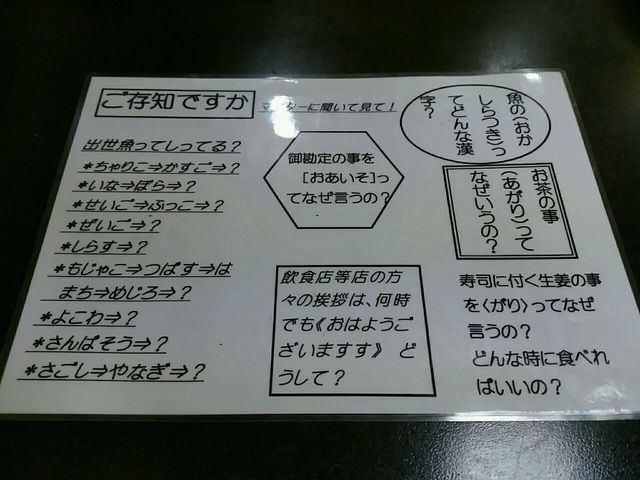 ご存知ですか
マスターに聞いて見て！
出世魚ってしってる？
*ちゃりこ⇒かすご⇒？
*いな⇒ぼら⇒？
*せいご⇒ふっこ⇒？
*ぜいご⇒？
*しらす⇒？
*もじゃこ⇒つばす⇒は
まち⇒めじろ⇒？
*よこわ⇒？
*さんぱそう⇒？
*さごし⇒やなぎ⇒？
御勘定の事を
[おあいそ]っ
てなぜ言うの？
飲食店等店の方
々の挨拶は、何時
でも《おはようご
ざいますす》 ど
うして？
魚の(おか
しらつき)っ
てどんな漢
字？
お茶の事
(あがり)って
なぜいうの？
寿司に付く生姜の事
を〈がり〉ってなぜ
言うの？
どんな時に食べれ
ばいいの？